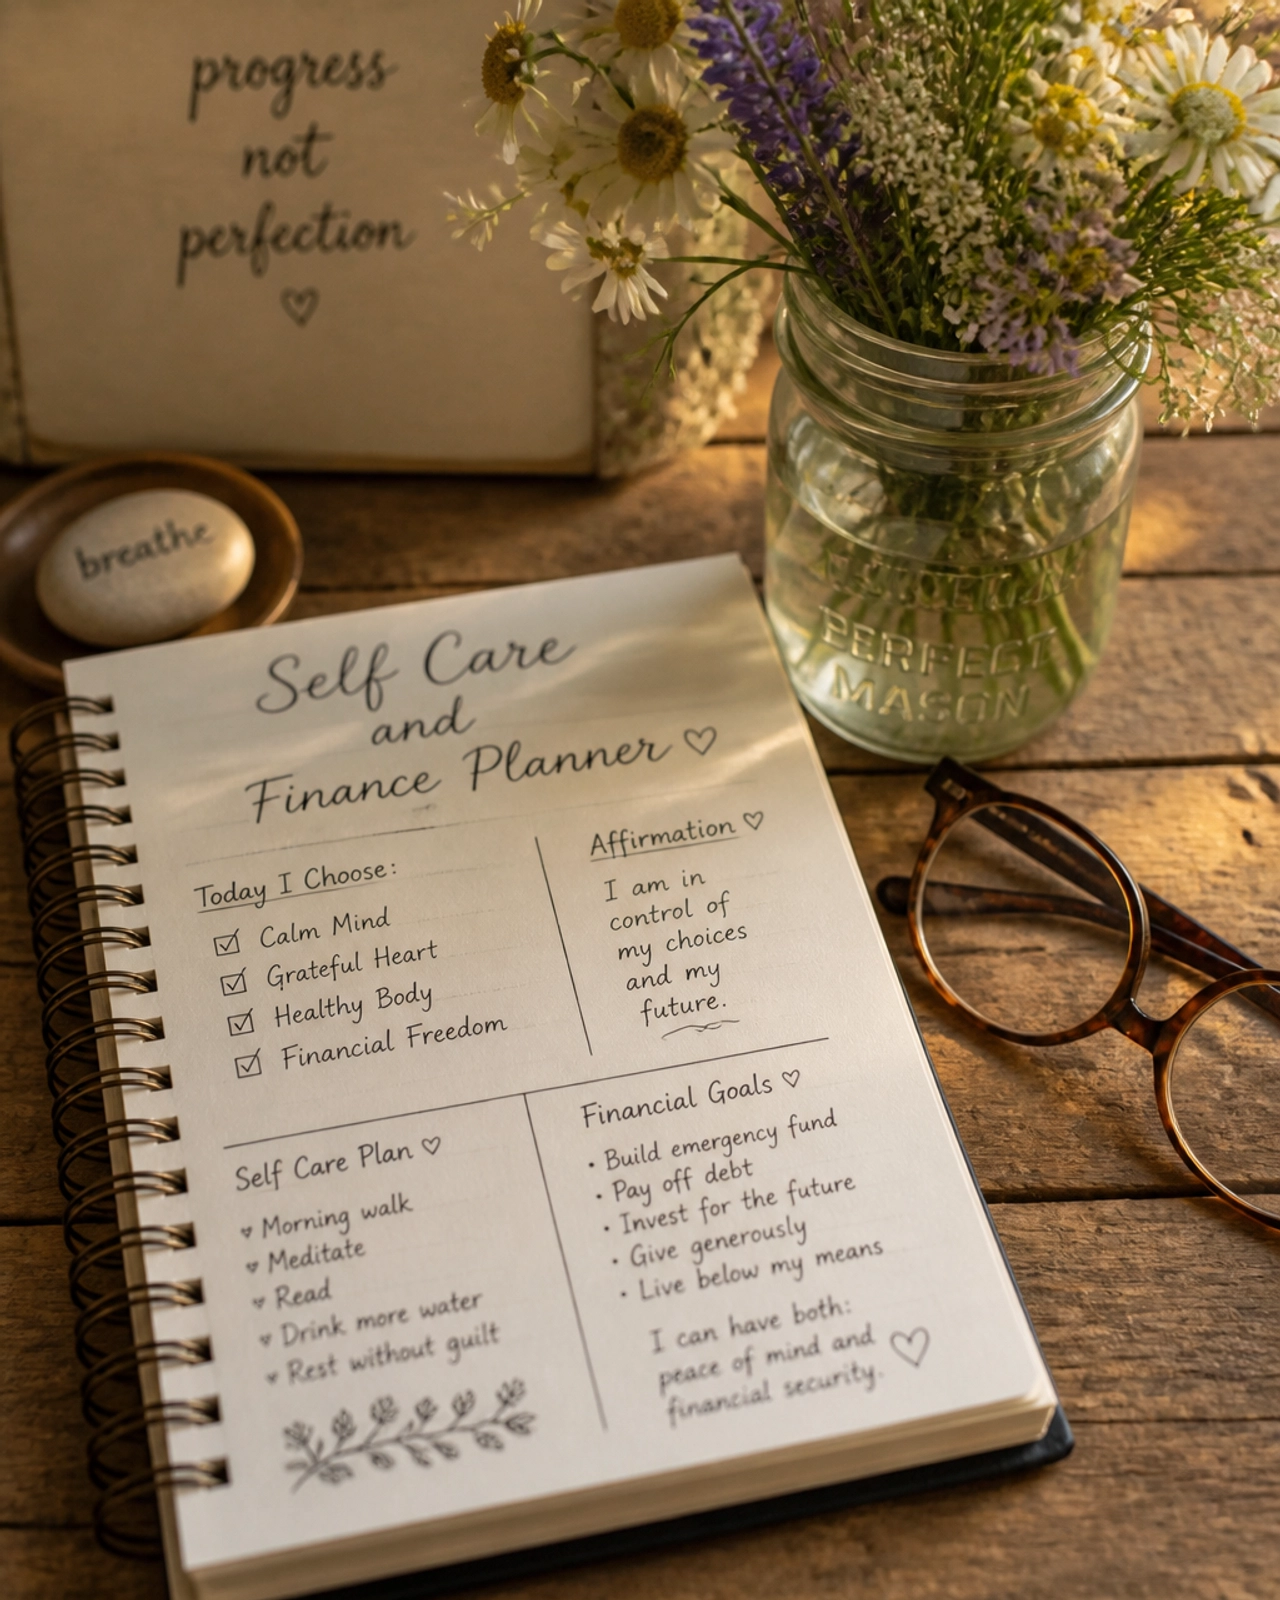 progress
not
perfection
breathe
PERFECT
MASON
Self Care
and
Finance Planner
Today I Choose:
Calm Mind
Grateful Heart
Healthy Body
Financial Freedom
Affirmation
I am in
control of
my choices
and my
future.
Self Care Plan
Morning walk
Meditate
Read
Drink more water
Rest without guilt
Financial Goals
• Build emergency fund
• Pay off debt
• Invest for the future
• Give generously
• Live below my means
I can have both:
peace of mind and
financial security.